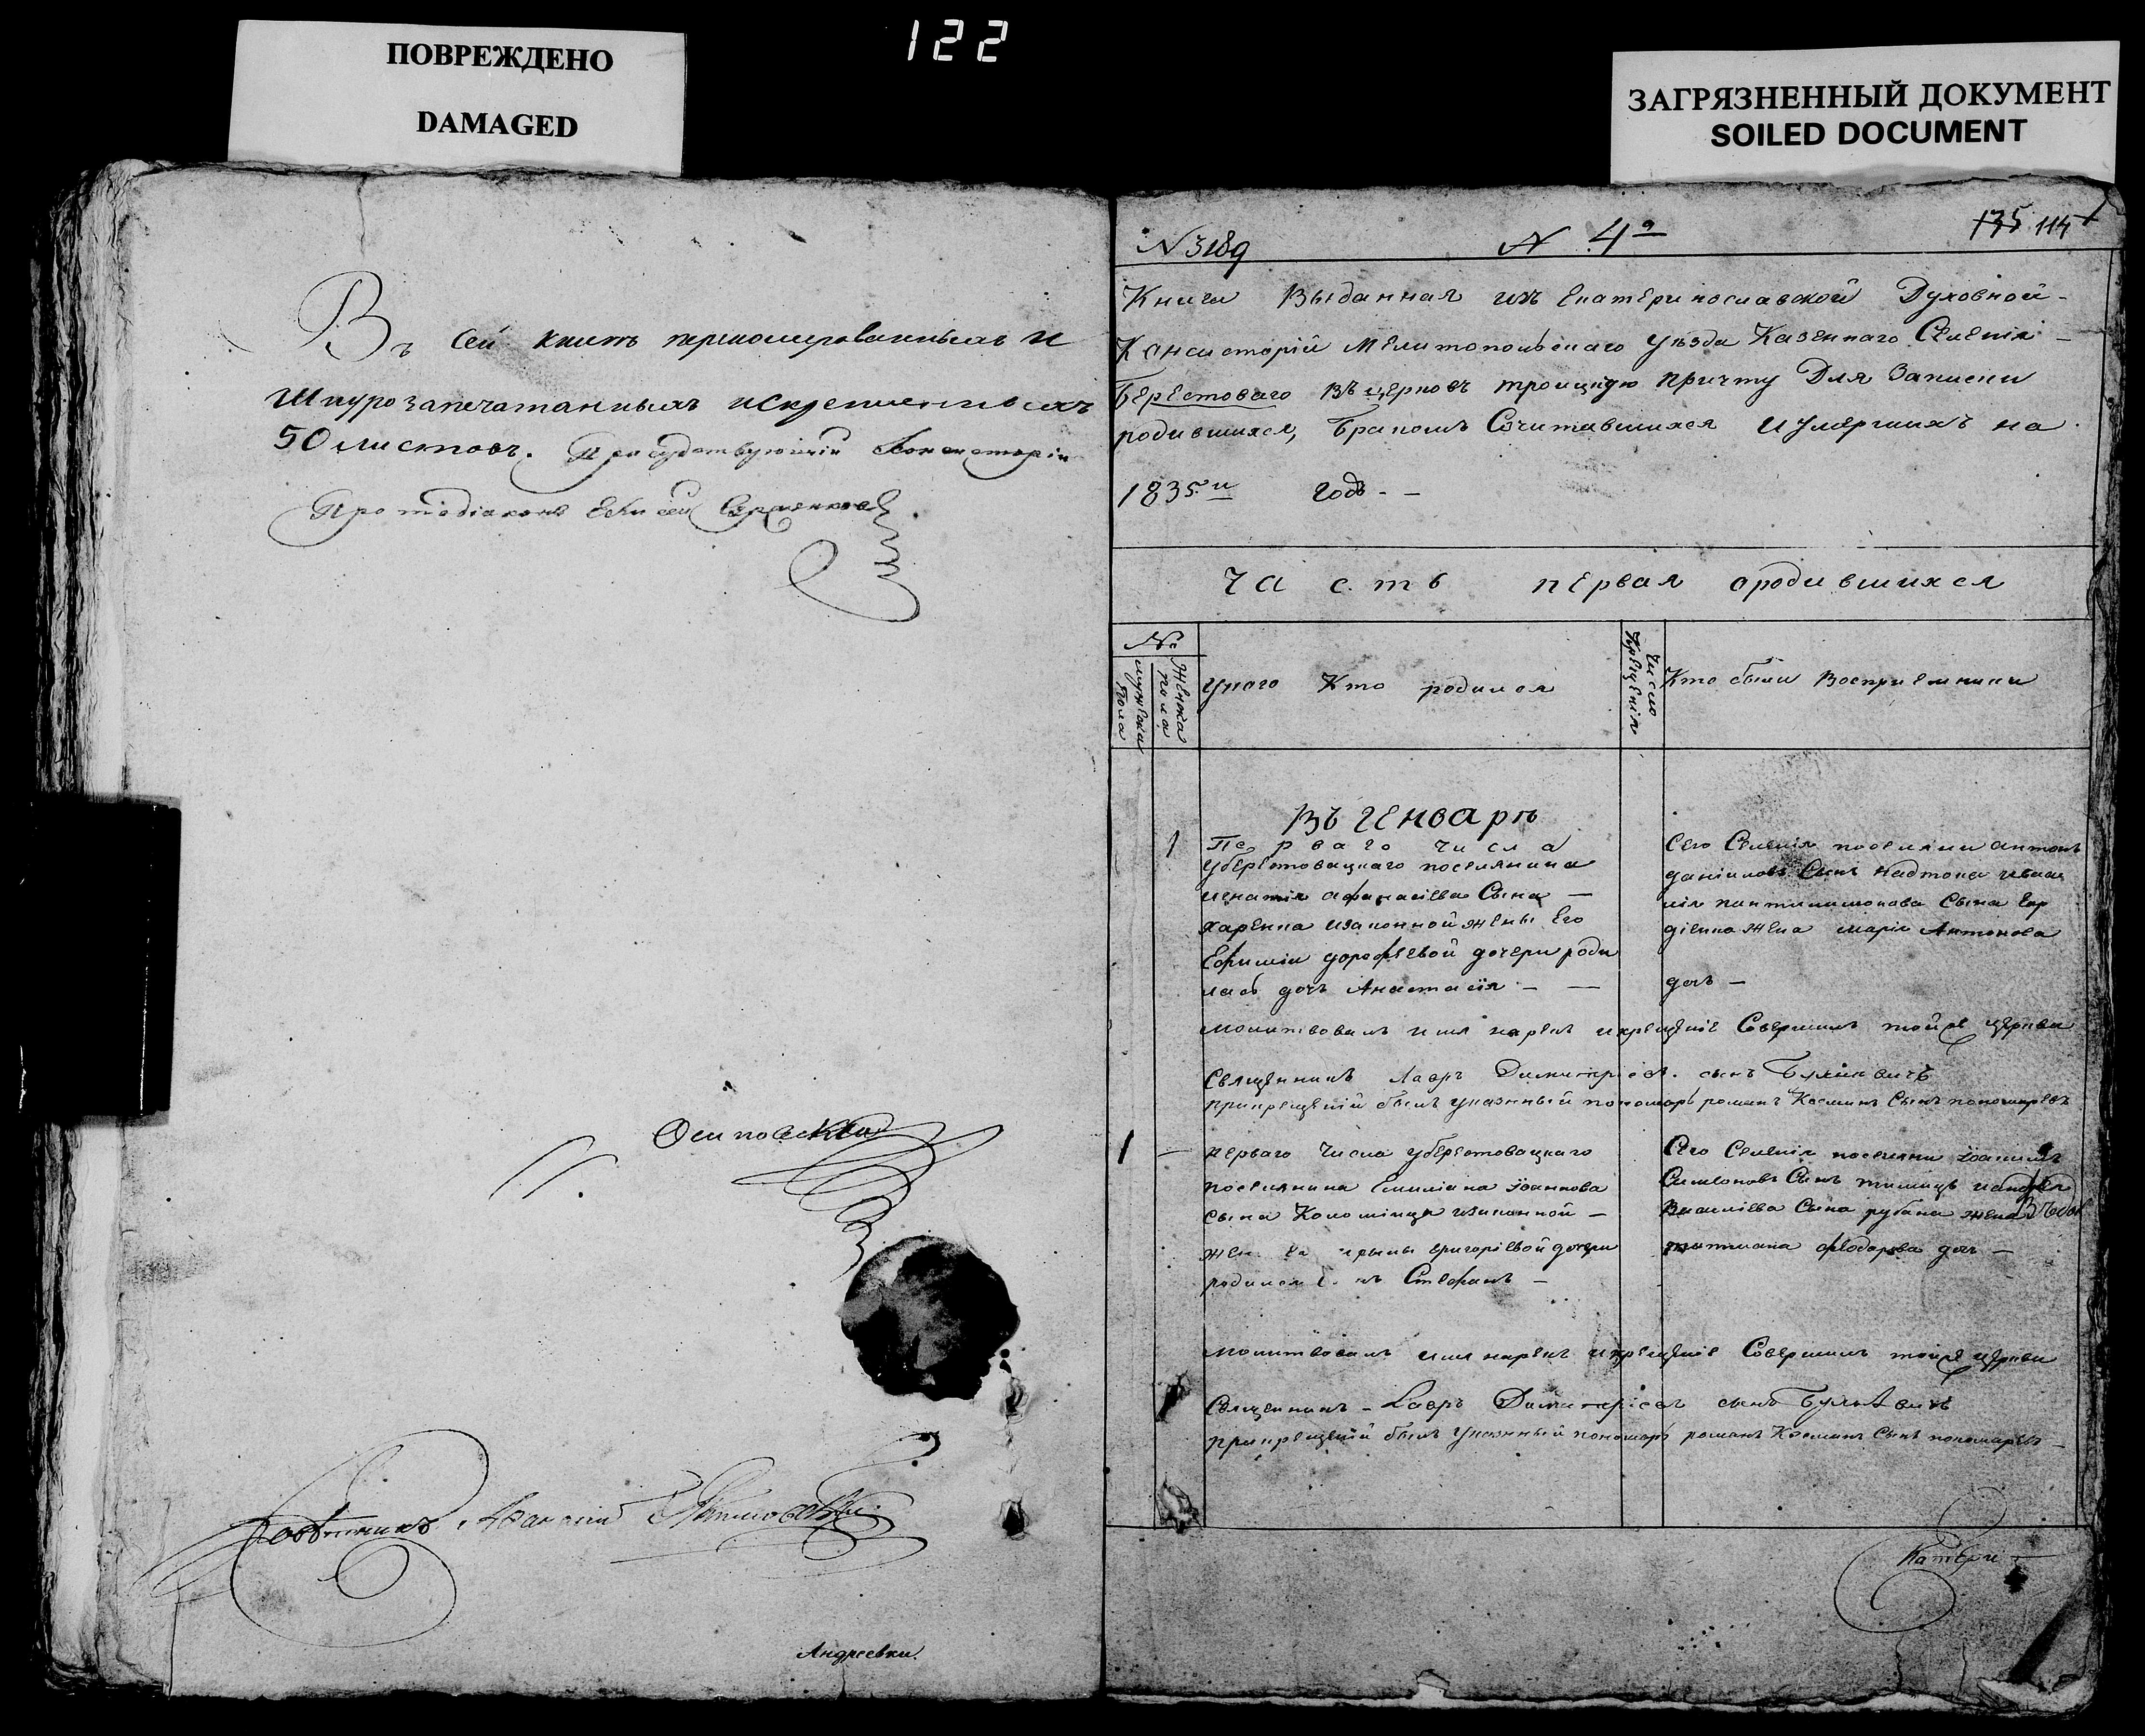 ПОВРЕЖДЕНО
DAMAGED
122
ЗАГРЯЗНЕННЫЙ ДОКУМЕНТ
SOILED DOCUMENT
Въ сей книгѣ перномерованныхъ и
Шнурозапечатанныхъ искрепленныхъ
50 листовъ. Присудствующій Консисторіи
Протодіаконъ Елисей
Осиповскій
Андреевки.
N 3189
N 4й
135 114
Книга Выданная изъ Екатеринославской Духовной -
Консисторіи Мелитопольскаго Уѣзда Казеннаго Селенія -
Берестоваго Въ церковь троицкую причту Для Записки
родившихся, Бракомъ Сочитавшихся И умершихъ на
1835й годъ - -
Часть первая ородившихся
№
мужеска пола
Женска пола
Укого Кто родился
Число Крещенія
Кто были Восприемники
Въ Генварѣ
1
Перваго числа
Уберестовацкаго поселянина
игнатія афанасіева Сына -
Харенка изаконной жены Его
Ефиміи дорофѣевой дочери роди
лась дочь Анастасія - -
Сего Селенія поселянин антонъ
даніиловъ Сынъ
пантилимонова Сына
жена марія Антонова
дочь -
молитвовалъ имя нарекъ икрещеніе Совершилъ тойже церкви
Священникъ Лавръ Димитріевъ сынъ
прикрещеніи былъ указнный пономарь романъ Косминъ Сынъ пономаревъ
1 -
перваго Числа уберестовацкаго
поселянина Емиліана іоаннова
сына Коломійца изаконной -
григоріевой дочери
родился Стефанъ -
Сего Селенія поселянин
Симеоновъ Сынъ
Василіева Сына рубана жена
татиана феодорова дочь -
молитвовалъ имя нарекъ икрещеніе Совершилъ тойже церкви
Священникъ - Лавръ Димитріевъ сынъ
прикрещеніи былъ Указнный пономарь романъ Косминъ Сынъ пономаревъ -